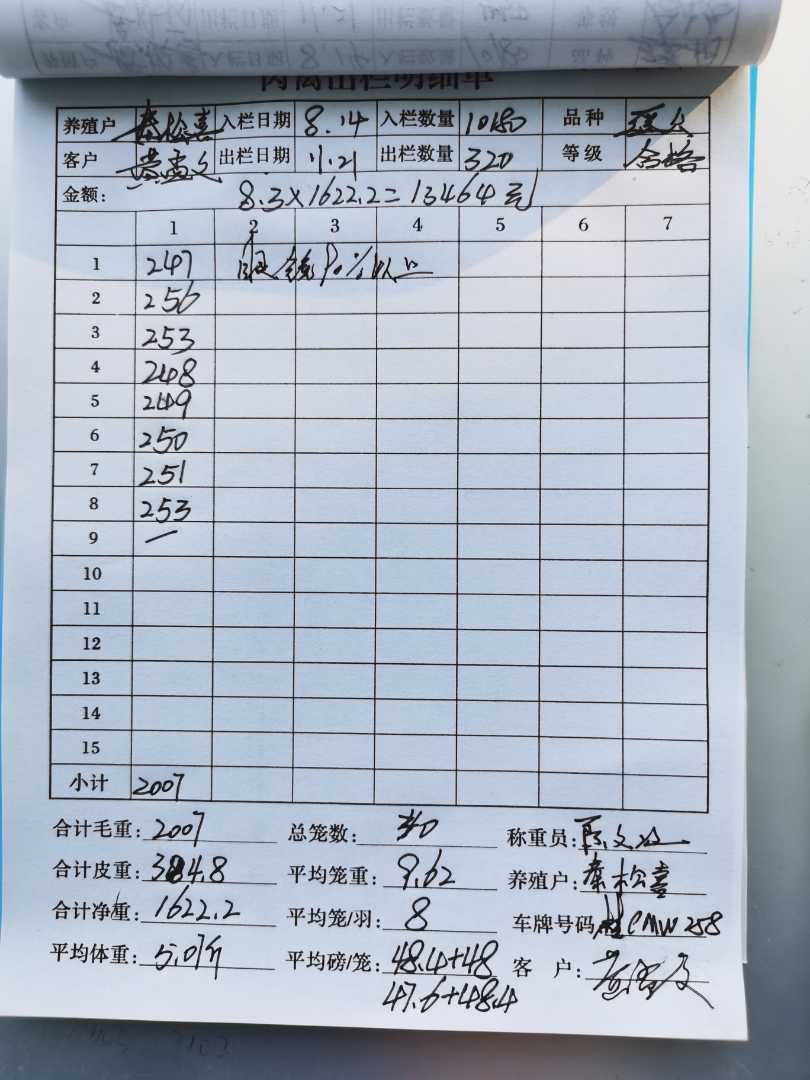 肉禽出栏明细单
养殖户 秦松喜 入栏日期 8.14 入栏数量 10180 品种
客户 出栏日期 11.21 出栏数量 320 等级 合格
金额: 8.3×1622.2=13464元
1 2 3 4 5 6 7
1 247 90%以上
2 256
3 253
4 248
5 249
6 250
7 251
8 253
9 一
10
11
12
13
14
15
小计 2007
合计毛重: 2007 总笼数: 40 称重员:
合计皮重: 384.8 平均笼重: 9.62 养殖户: 秦松喜
合计净重: 1622.2 平均笼/羽: 8 车牌号码 桂CMW258
平均体重: 5.07斤 平均磅/笼: 48.4+48 客 户:
47.6+48.4